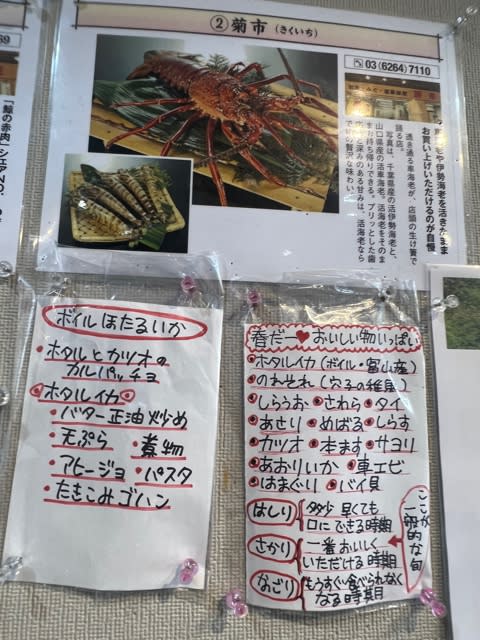 ②菊市(きくいち)
03(6264)7110
お買い上げいただけるのが自慢
透き通る車海老が、店頭の生け簀で
踊る店。
写真は、千葉県産の活伊勢海老と、
山口県産の活車海老。活海老をそのま
まお持ち帰りできる。プリッとした歯
深みのある甘みは、活海老なら
贅沢な味わい。
「鯨の赤肉」
69
ボイルほたるいか
・ホタルとカツオの
カルパッチョ
・ホタルイカ
・バター正油炒め
・天ぷら ・煮物
・アヒージョ ・パスタ
・たきこみゴハン
春だー♥おいしい物いっぱい
・ホタルイカ(ボイル・富山産)
・のれそれ(穴子の稚魚)
・しらうお ・さわら ・タイ
・あさり ・めばる ・しらす
・カツオ ・本ます ・サヨリ
・あおりいか ・車エビ
・はまぐり ・バイ貝
はしり 多少早くても
口にできる時期
さかり 一番おいしく
いただける時期
なごり もうすぐ食べられなく
なる時期
ここが
一般的な旬